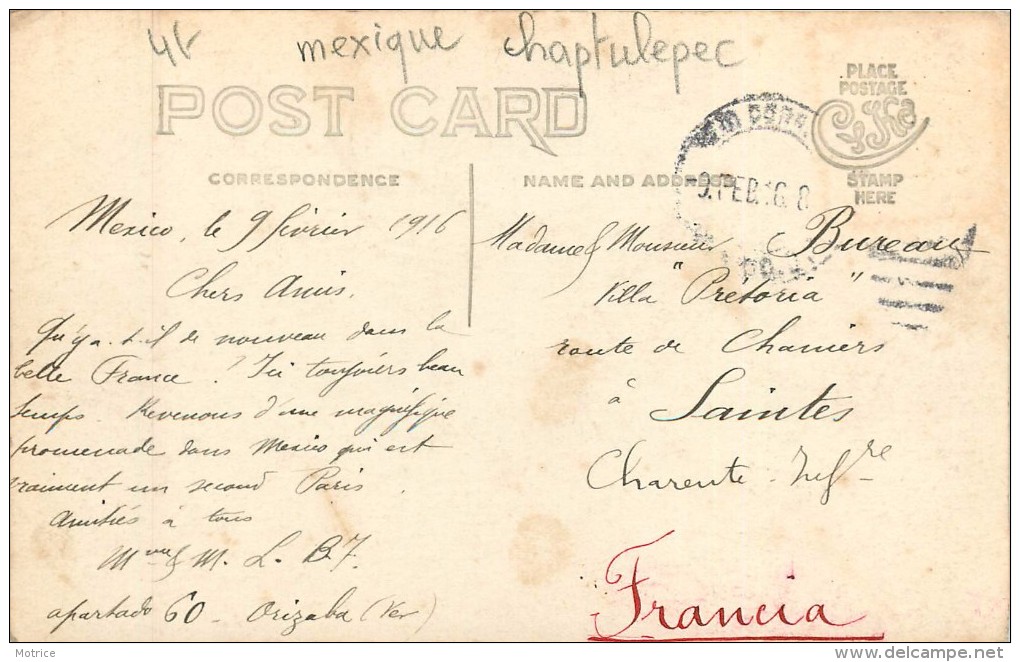 41
mexique chaptulepec
POST CARD
PLACE
POSTAGE
STAMP
HERE
CORRESPONDENCE
NAME AND ADDRESS
9.FEB.16.8
Mexico, le 9 février 1916
Chers Amis.
Qu'y a-t-il de nouveau dans la
belle France? Ici toujours beau
temps. Revenons d'une magnifique
promenade dans Mexico qui est
vraiment un second Paris.
Amitiés à tous
Mme & M. L. B.
apartado 60 - Orizaba (Ver)
Madame & Monsieur Bureau
Villa "Prétoria"
route de Chaniers
à Saintes
Charente-Infre
Francia
Motrice
delcampe.net